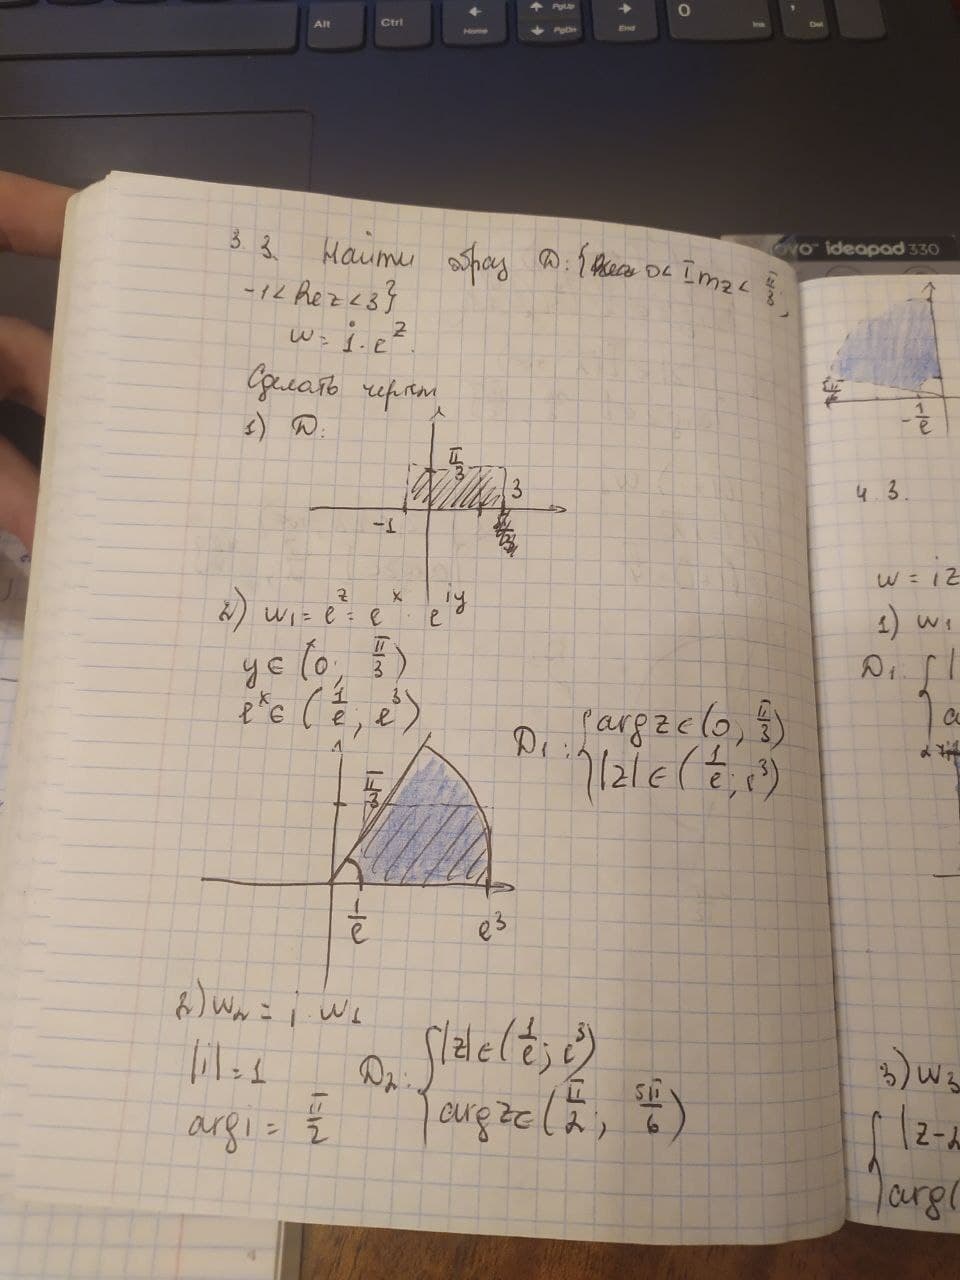 Alt
Ctrl
Home
PgUp
PgDn
End
0
Ins
Del
ideapad 330
3.3. Найти образ D: { 0 < Im z < π/3,
-1 < Re z < 3}
w = i · e^z
Сделать чертеж
1) D:
π/3
3
-1
2) w₁ = e^z = e^x · e^iy
y ∈ (0; π/3)
e^x ∈ (1/e; e³)
D₁: { arg z ∈ (0, π/3)
|z| ∈ (1/e; e³)
π/3
1/e
e³
2) w₂ = i · w₁
|i| = 1
D₂: { |z| ∈ (1/e; e³)
arg i = π/2
arg z ∈ (π/2; 5π/6)
-1/e
4.3.
w = iz
1) w₁
D₁: { |
3) w₃
{ |z-
arg(